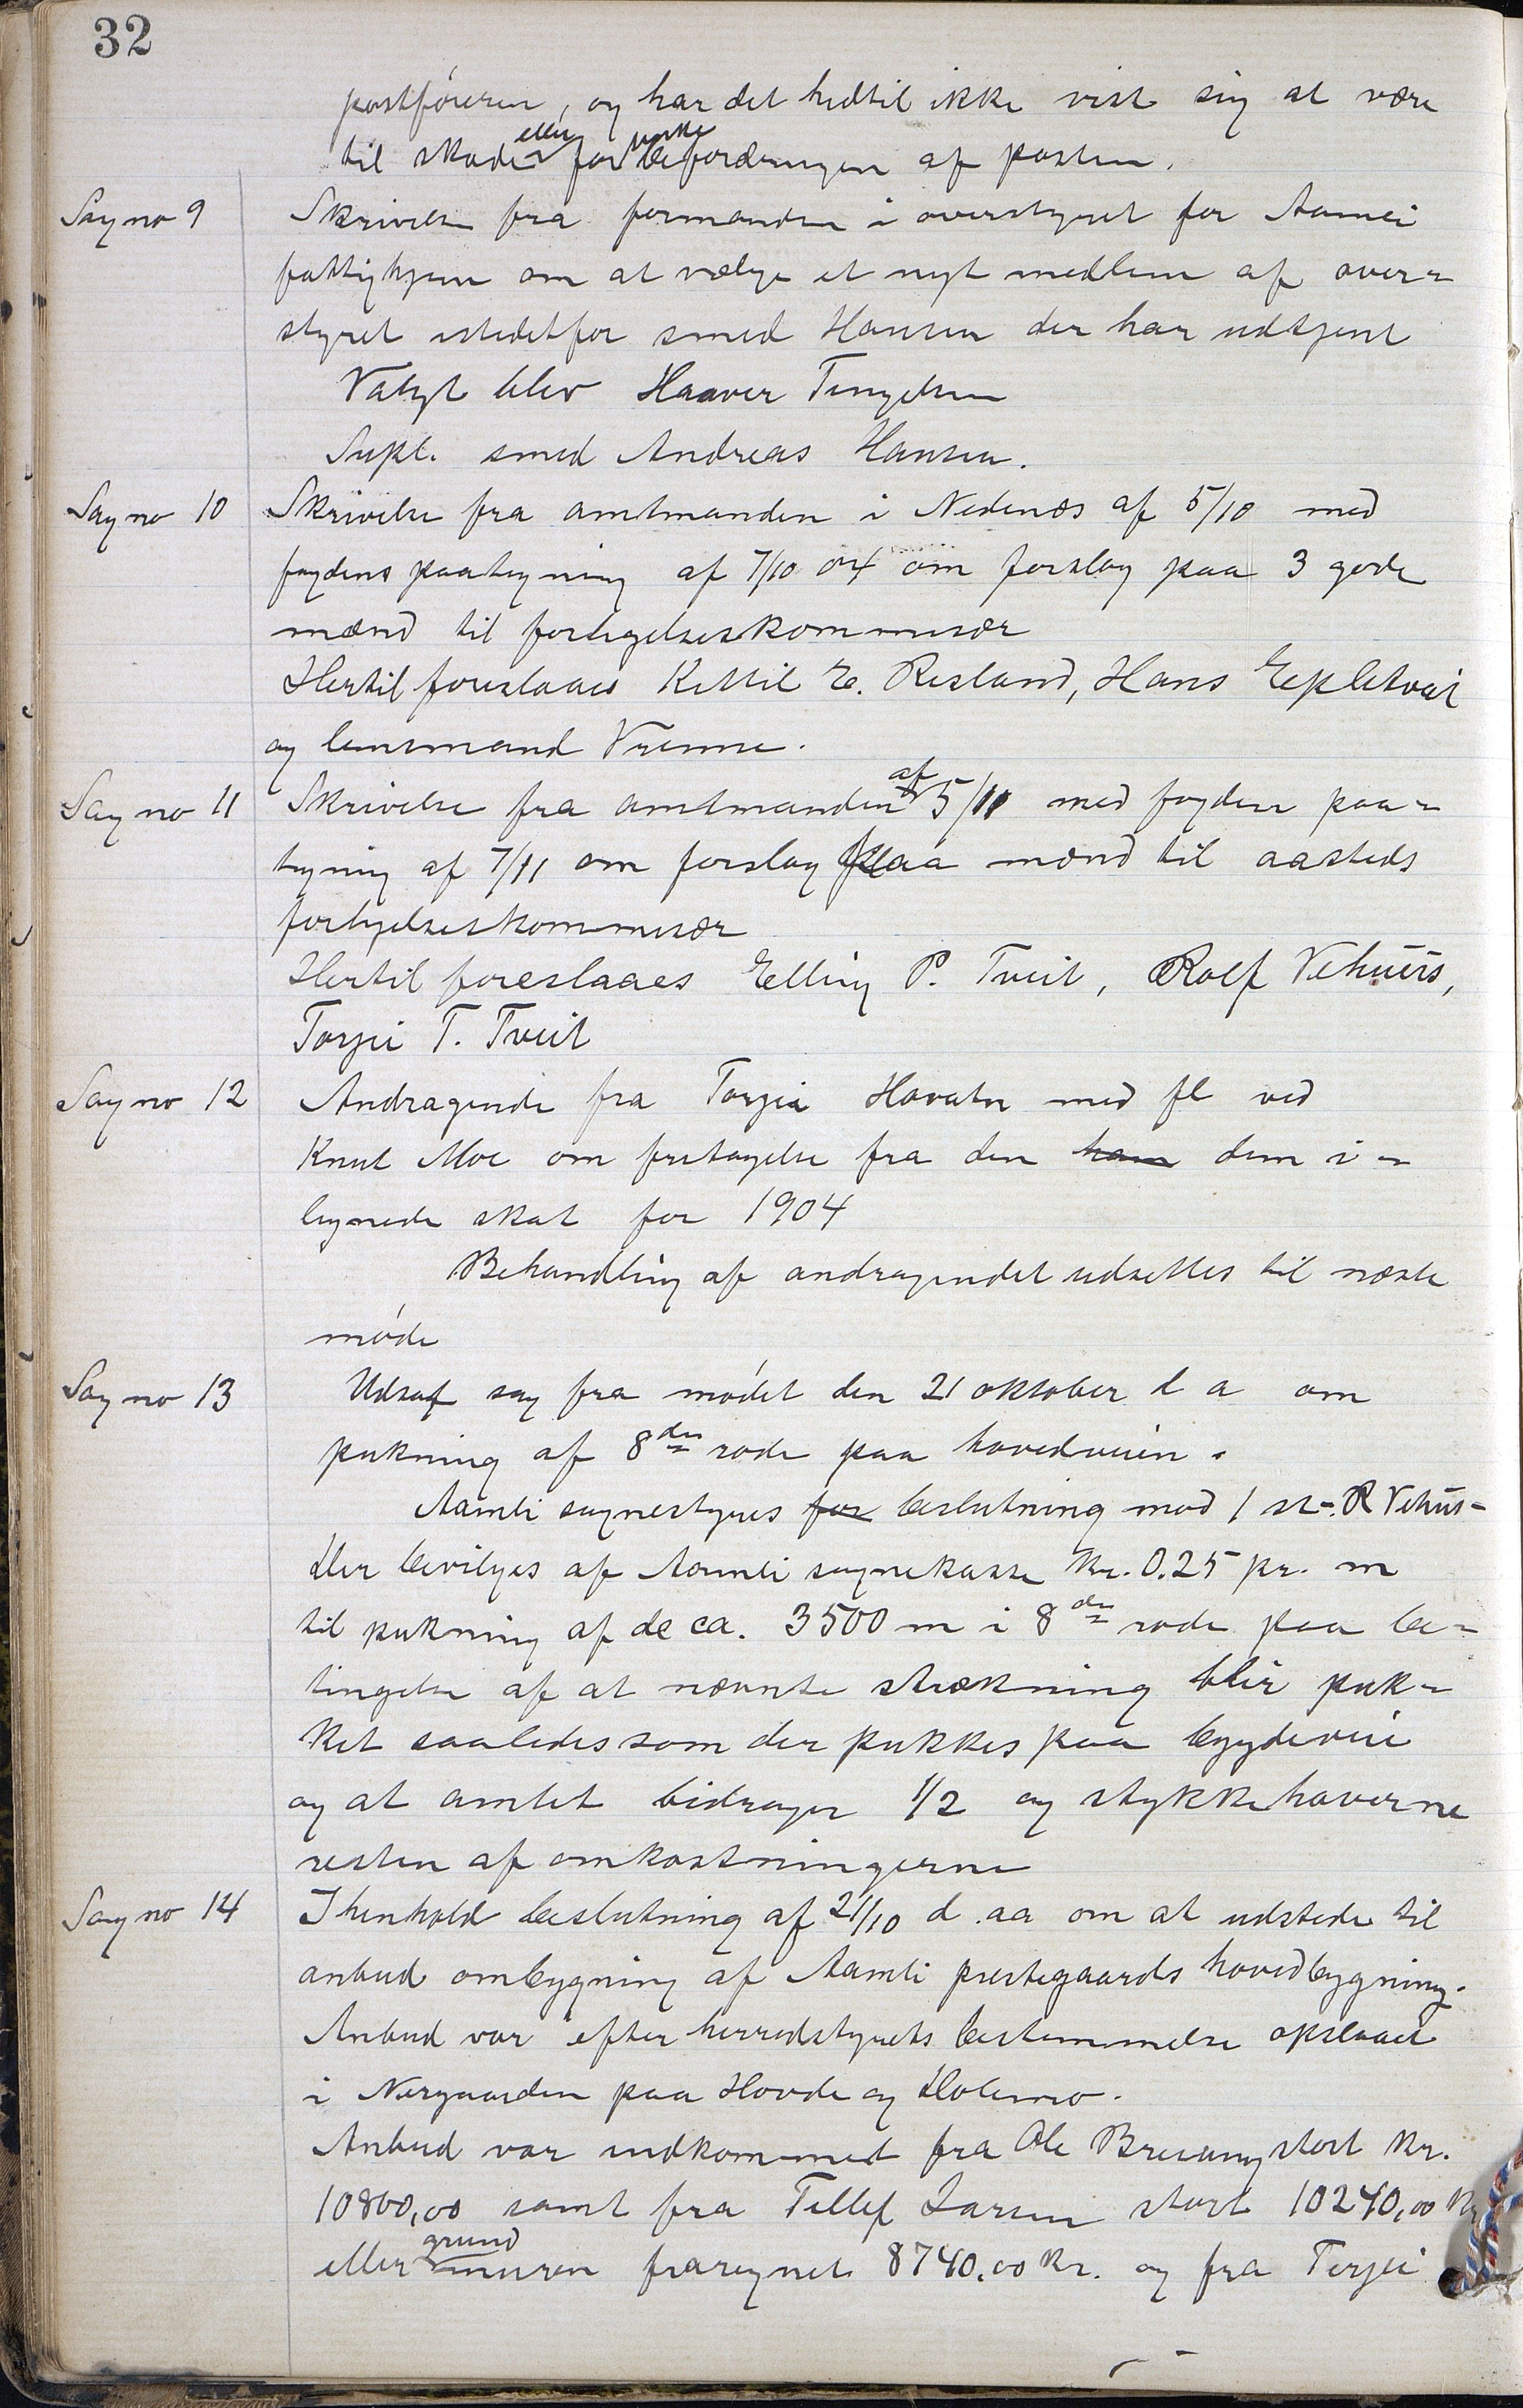 32
postføreren, og har det hedtil ikke vist sig at være
til skade eller for befordringen af posten.
Sag no 9 Skrivelse fra formanden i overstyret for Aamli
fattighjem om at vælge et nyt medlem af over=
styret istedetfor smed Hansen der har udtjent
Valgt blev Haaver Tengelsen
Supl. smed Andreas Hansen.
Sag no 10 Skrivelse fra amtmanden i Nedenæs af 5/10 med
fogdens paategning af 7/10 04 om forslag paa 3 gode
mænd til forligelseskommisær
Hertil foreslaaes Kettil E. Risland, Hans Eppletveit
og lensmand Vrenne.
Sag no 11 Skrivelse fra amtmanden af 5/11 med fogdens paa=
tegning af 7/11 om forslag paa mænd til aasteds
forligelseskommisær
Hertil foreslaaes Elling P. Tveit, Rolf Vehuus,
Torjei T. Tveit
Sag no 12 Andragende fra Torjei Hovatn med fl ved
Knut Moe om fritagelse fra den ham dem i=
lignede skat for 1904
Behandling af andragendet udsettes til næste
møde
Sag no 13 Udsat sag fra mødet den 21 oktober d a om
pukning af 8de rode paa hovedveien.
Aamli sognestyres for beslutning mod 1 st-. R Vehus-
Der bevilges af Aamli sognekasse kr. 0.25 pr. m
til pukning af de ca. 3500 m i 8de rode paa be=
tingelse af at nævnte strækning blir puk=
ket saaledes som der pukkes paa bygdeveie
og at amtet bidrager 1/2 og stykkehaverne
resten af omkostningerne
Sag no 14 I henhold beslutning af 21/10 d. aa om at udstede til
anbud ombygning af Aamli prestegaards hovedbygning.
Anbud var efter herredstyrets bestemmelse opslaaet
i Nergaarden paa Hovde og Dølemo.
Anbud var indkommet fra Ole Bresang stort kr.
10800,00 samt fra Tellef Larsen stort 10240,00 kr
eller grundmuren frareignet 8740.00 kr. og fra Terjei